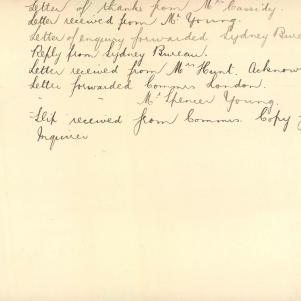 Letter of thanks from Mrs Cassidy.
Letter received from Mr Young.
Letter of enquiry forwarded Sydney Bure
Reply from Sydney Bureau.
Letter received from Mrs Hunt. Acknow
Letter forwarded London.
" " Mr Spencer Young.
Slip received from Commrs. Copy
Inquirer